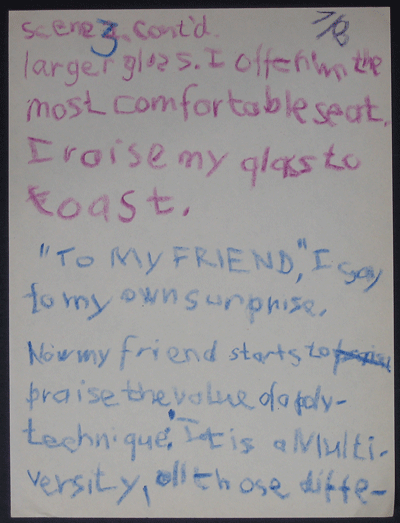 scene 3, cont'd. 7/8
larger glass. I offer him the
most comfortable seat.
I raise my glass to
toast.
"TO MY FRIEND," I say
to my own surprise.
Now my friend starts to
praise the value of a poly-
technique. It is a Multi-
versity, all those diffe-